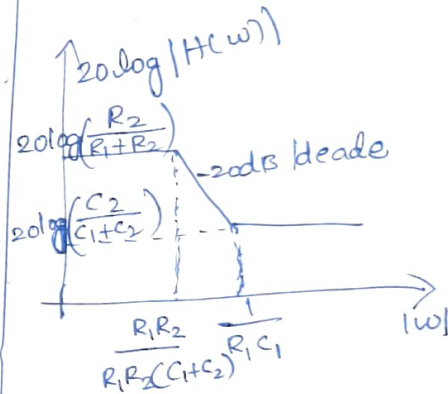 20log|H(ω)|
20log(R2/(R1+R2))
-20dB /deade
20log(C2/(C1+C2))
R1R2/(R1R2(C1+C2))
1/(R1C1)
|ω|